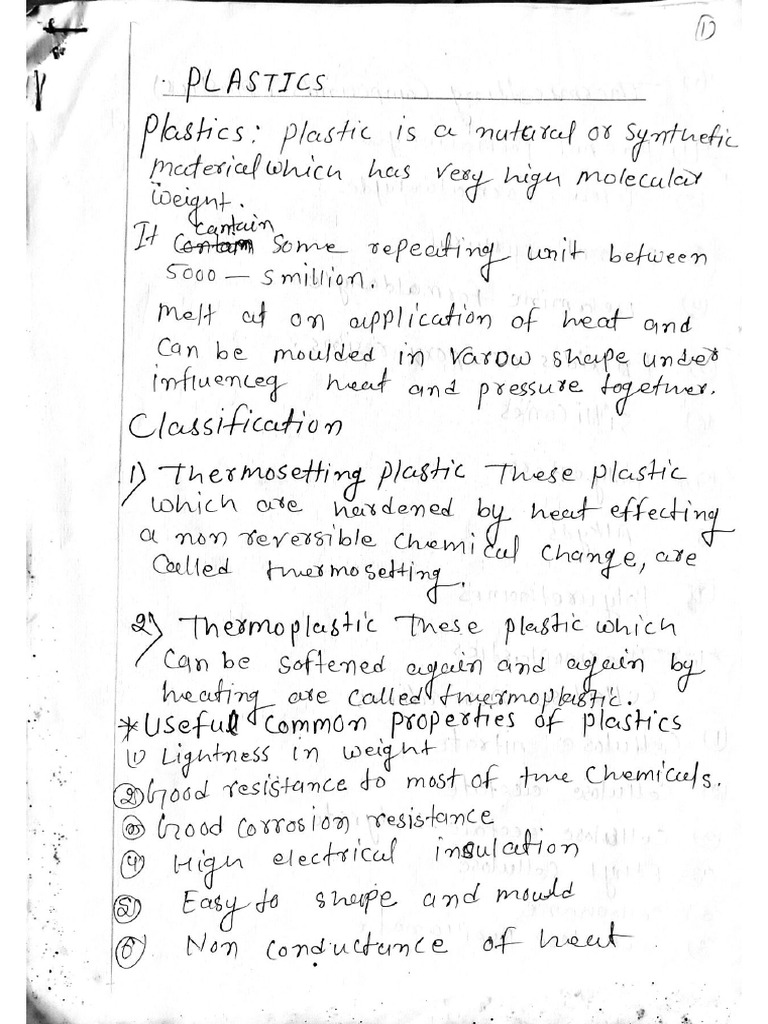 1)
PLASTICS
Plastics: Plastic is a nutaral or synthetic
material which has very high molecular
weight.
cantain
It Contam Some repeating unit between
5000 — 5 million.
Melt at on application of heat and
Can be moulded in Varow shape under
influenceg heat and pressure together.
Classification
1) Thermosetting plastic These plastic
which are hardened by heat effecting
a non reversible chemical change, are
Called thermosetting.
2) Thermoplastic These plastic which
Can be softened again and again by
heating are called thermoplastic.
* Useful common properties of plastics
(1) Lightness in weight
(2) Good resistance to most of the Chemicals.
(3) Good corrosion resistance
(4) High electrical insulation
(5) Easy to shape and mould
(6) Non conductance of heat.